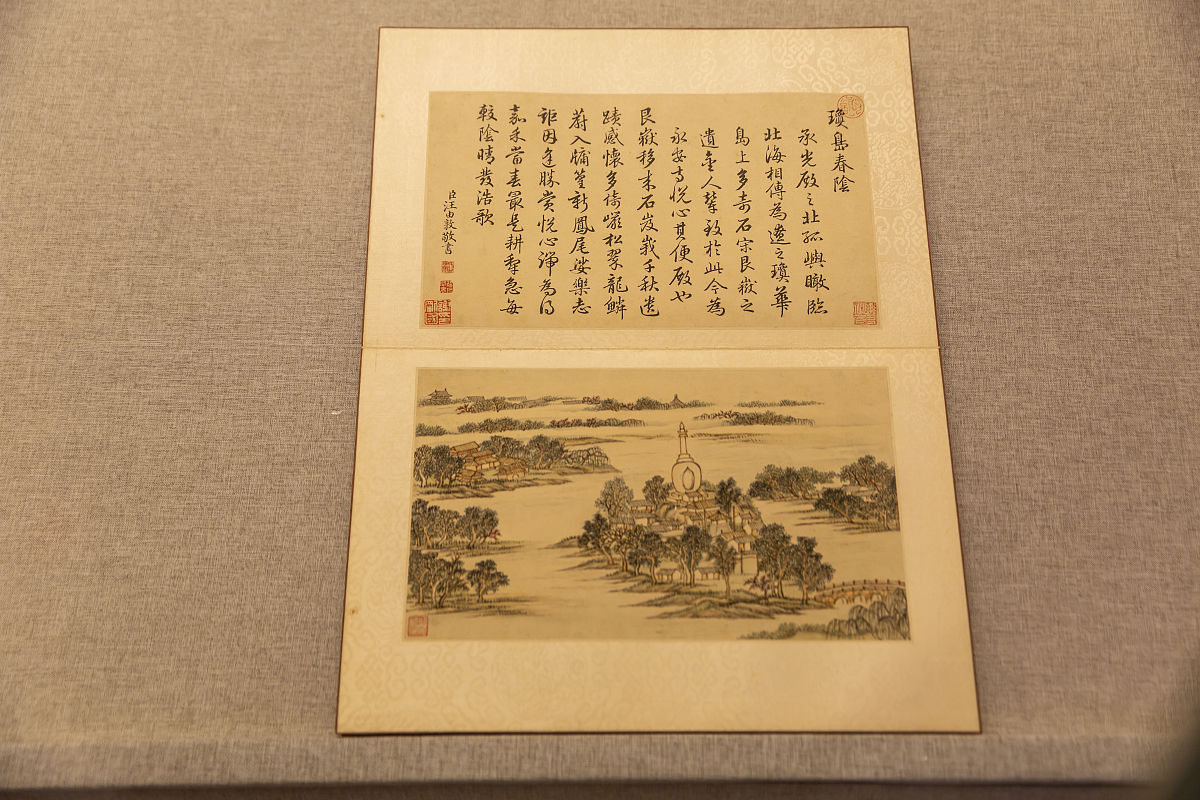 瓊島春陰
承光殿之北孤嶼瞰臨
北海相傳為遼之瓊華
島上多奇石宗艮嶽之
遺金人輦致於此今為
永安寺悅心其便殿也
艮嶽移来石岌峩千秋遺
蹟感懷多倚巖松翠龍鱗
蔚入牖篁新鳳尾娑樂志
詎因逢勝賞悅心端為得
嘉禾當春最是耕犂急每
較陰晴發浩歌
臣汪由敦敬書